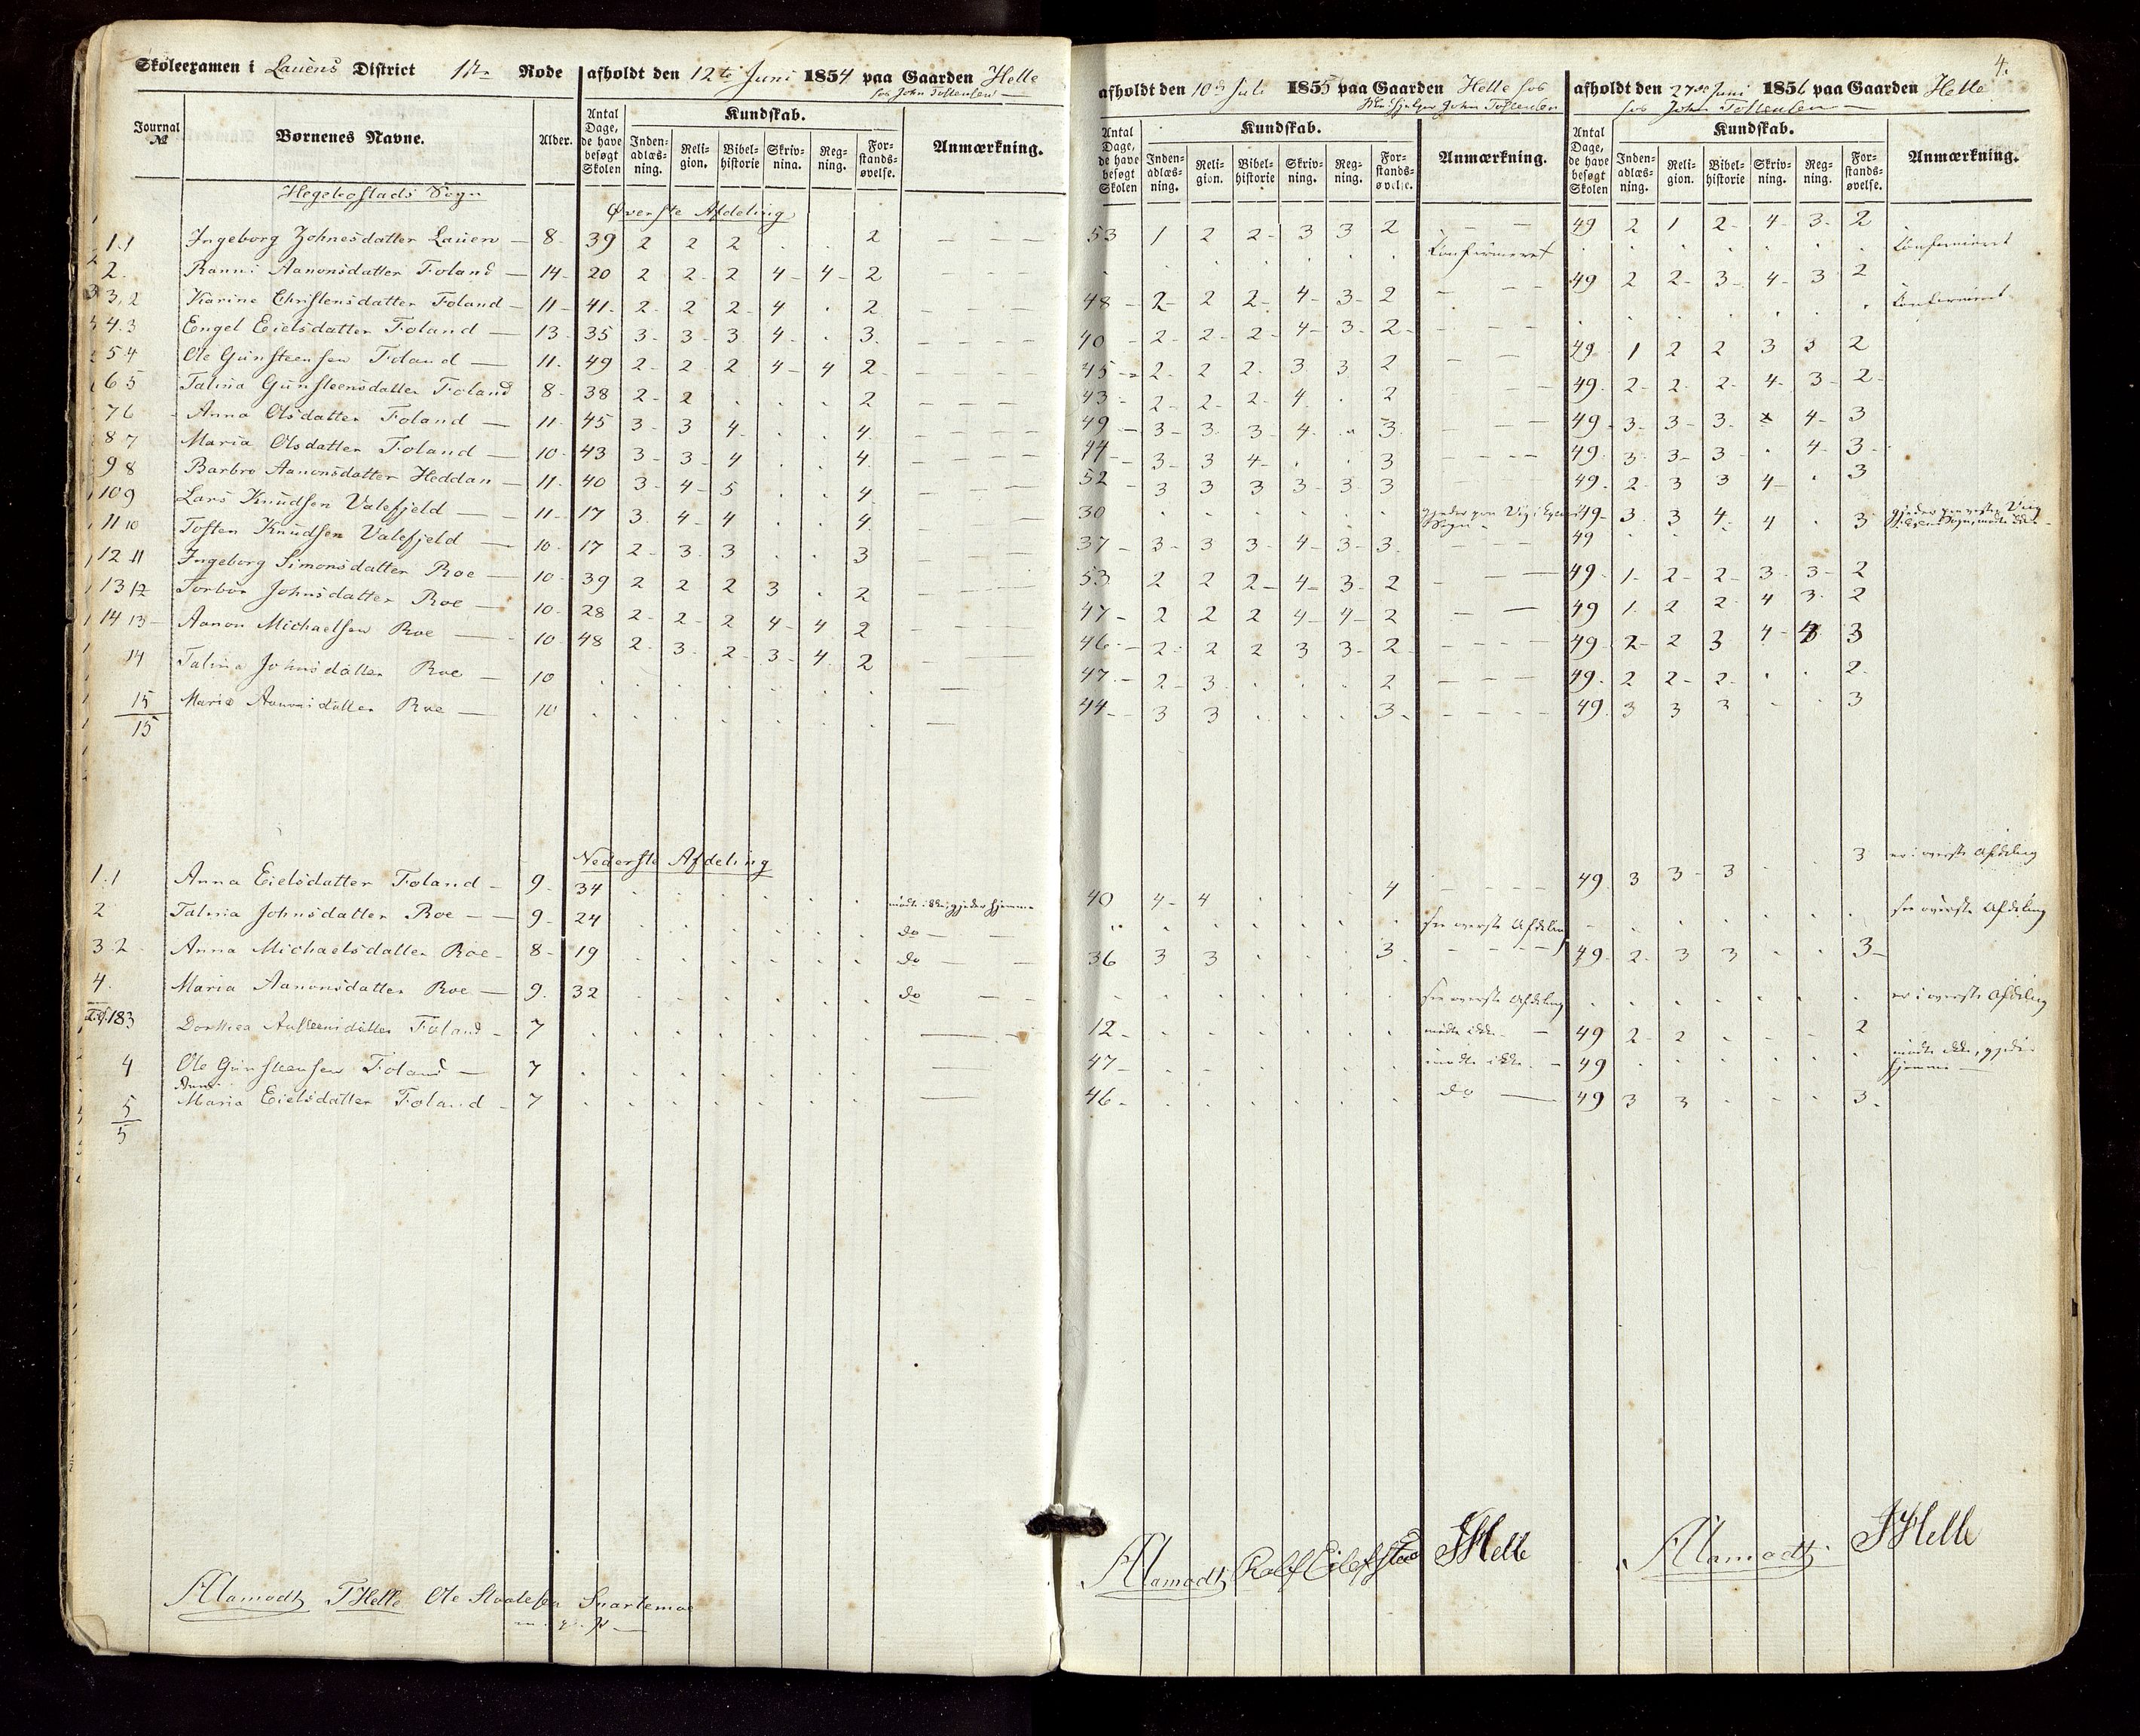 Skoleexamen i Lauens District 1ste Rode
afholdt den 12te Juni 1854 paa Gaarden Helle
hos John Tostensen
Journal № Børnenes Navne. Alder. Antal Dage, de have besøgt Skolen Kundskab. Anmærkning.
Inden-adlæs-ning. Reli-gion. Bibel-historie Skriv-nina. Reg-ning. For-stands-øvelse.
Hegebostads Sogn
Øverste Afdeling
1.1 Ingeborg Johnesdatter Lauen — 8 39 2 2 2 . . 2 — — —
2. Ranni Aanonsdatter Foland — 14 20 2 2 2 4 4 2
3.2 Karine Christensdatter Foland — 11 41 2 2 2 4 . 2 — — —
4.3 Engel Eielsdatter Foland — 13 35 3 3 3 4 . 3 — — —
5 4 Ole Gunsteensen Foland — 11 49 2 2 2 4 4 2 — — —
6 5 Talina Gunsteensdatter Foland 8 38 2 2 . . . 2 — — —
7 6 Anna Olsdatter Foland — 11 45 3 3 4 . . 4 — — —
8 7 Maria Olsdatter Foland — 10 43 3 3 4 . . 4 — — —
9 8 Barbro Aanonsdatter Heddan — 11 40 3 4 5 . . 4 — — —
10 9 Lars Knudsen Valefjeld — 11 17 3 4 4 . . 4 — — —
11 10 Tosten Knudsen Valefjeld — 10 17 2 3 3 . . 3 — — —
12 11 Ingeborg Simonsdatter Roe — 10 39 2 2 2 3 . 2 — — —
13 12 Torbor Johnsdatter Roe — 10 28 2 2 2 4 4 2 — — —
14 13 Aanon Michaelsen Roe — 10 48 2 3 2 3 4 2 — — —
14 Talina Johnsdatter Roe — 10 . . . . . . . —
15 Maria Aanonsdatter Roe — 10 . . . . . . . —
15
Nederste Afdeling
1.1 Anna Eielsdatter Foland — 9 34 . . . . . . mødte ikke, gjeder hjemme
2 Talina Johnsdatter Roe — 9 24 . . . . . . do —
3 2 Anna Michaelsdatter Roe — 8 19 . . . . . . do —
4. Maria Aanonsdatter Roe — 9 32 . . . . . . do —
3 Dorthea Foland — 7 . . . . . . . —
4 Ole Gunsteensen Foland — 7 . . . . . . . —
Anne
5 Maria Eielsdatter Foland — 7 . . . . . . . —
5
Aamodt THelle Ole Svartemoe
afholdt den 10de Juli 1855 paa Gaarden Helle hos
John Tostensen
Antal Dage, de have besøgt Skolen Kundskab. Anmærkning.
Inden-adlæs-ning. Reli-gion. Bibel-historie Skriv-ning. Reg-ning. For-stands-øvelse.
53 1 2 2 3 3 2 — —
. . . . . . . Confirmeret
48 2 2 2 4 3 2 — — —
40 2 2 2 4 3 2 — — —
45 2 2 2 3 3 2 — —
43 2 2 2 4 . 2 — —
49 3 3 3 4 . 3 — — —
44 3 3 4 . . 3 — — —
52 3 3 3 3 3 3
30 . . . . . . gjeder paa
Sogn
37 3 3 3 4 3 3 — — —
53 2 2 2 4 3 2 — — —
47 2 2 2 4 4 2 — —
46 2 2 2 3 3 2 — — —
47 2 3 . . . 2 — — —
44 3 3 . . . 3 — — —
40 4 4 . . . 4 — — —
. . . . . . . see øverste Afdeling
36 3 3 . . . 3 — — —
. . . . . . . see øverste Afdeling
12 . . . . . . mødte ikke —
47 . . . . . . mødte ikke —
46 . . . . . . do —
Aamodt Rolf Eilefstad THelle
4.
afholdt den 27de Juni 1856 paa Gaarden Helle
hos John Tostensen
Antal Dage, de have besøgt Skolen Kundskab. Anmærkning.
Inden-adlæs-ning. Reli-gion. Bibel-historie Skriv-ning. Reg-ning. For-stands-øvelse.
49 2 1 2 4 3 2
. . . . . . . Confirmeret
49 2 2 3 4 3 2
. . . . . . . Confirmeret
49 1 2 2 3 3 2
49 2 2 2 4 3 2
49 3 3 3 4 3
49 3 3 3 . 4 3
49 2 3 3 4 . 3
49 3 3 4 4 . 3
49 . .
49 1 2 2 3 3 2
49 1 2 2 4 3 2
49 2 2 3 4 3 3
49 2 2 2 . . 2
49 3 3 3 . . 3
49 3 3 3 . . 3 er i øverste Afdeling
. . . . . . . see øverste Afdeling
49 2 3 3 . . 3
. . . . . . . er i øverste Afdeling
49 2 2 . . . 2
49 . . . . . . mødte ikke, gjeder
hjemme —
49 3 3 . . . 3
Aamodt THelle